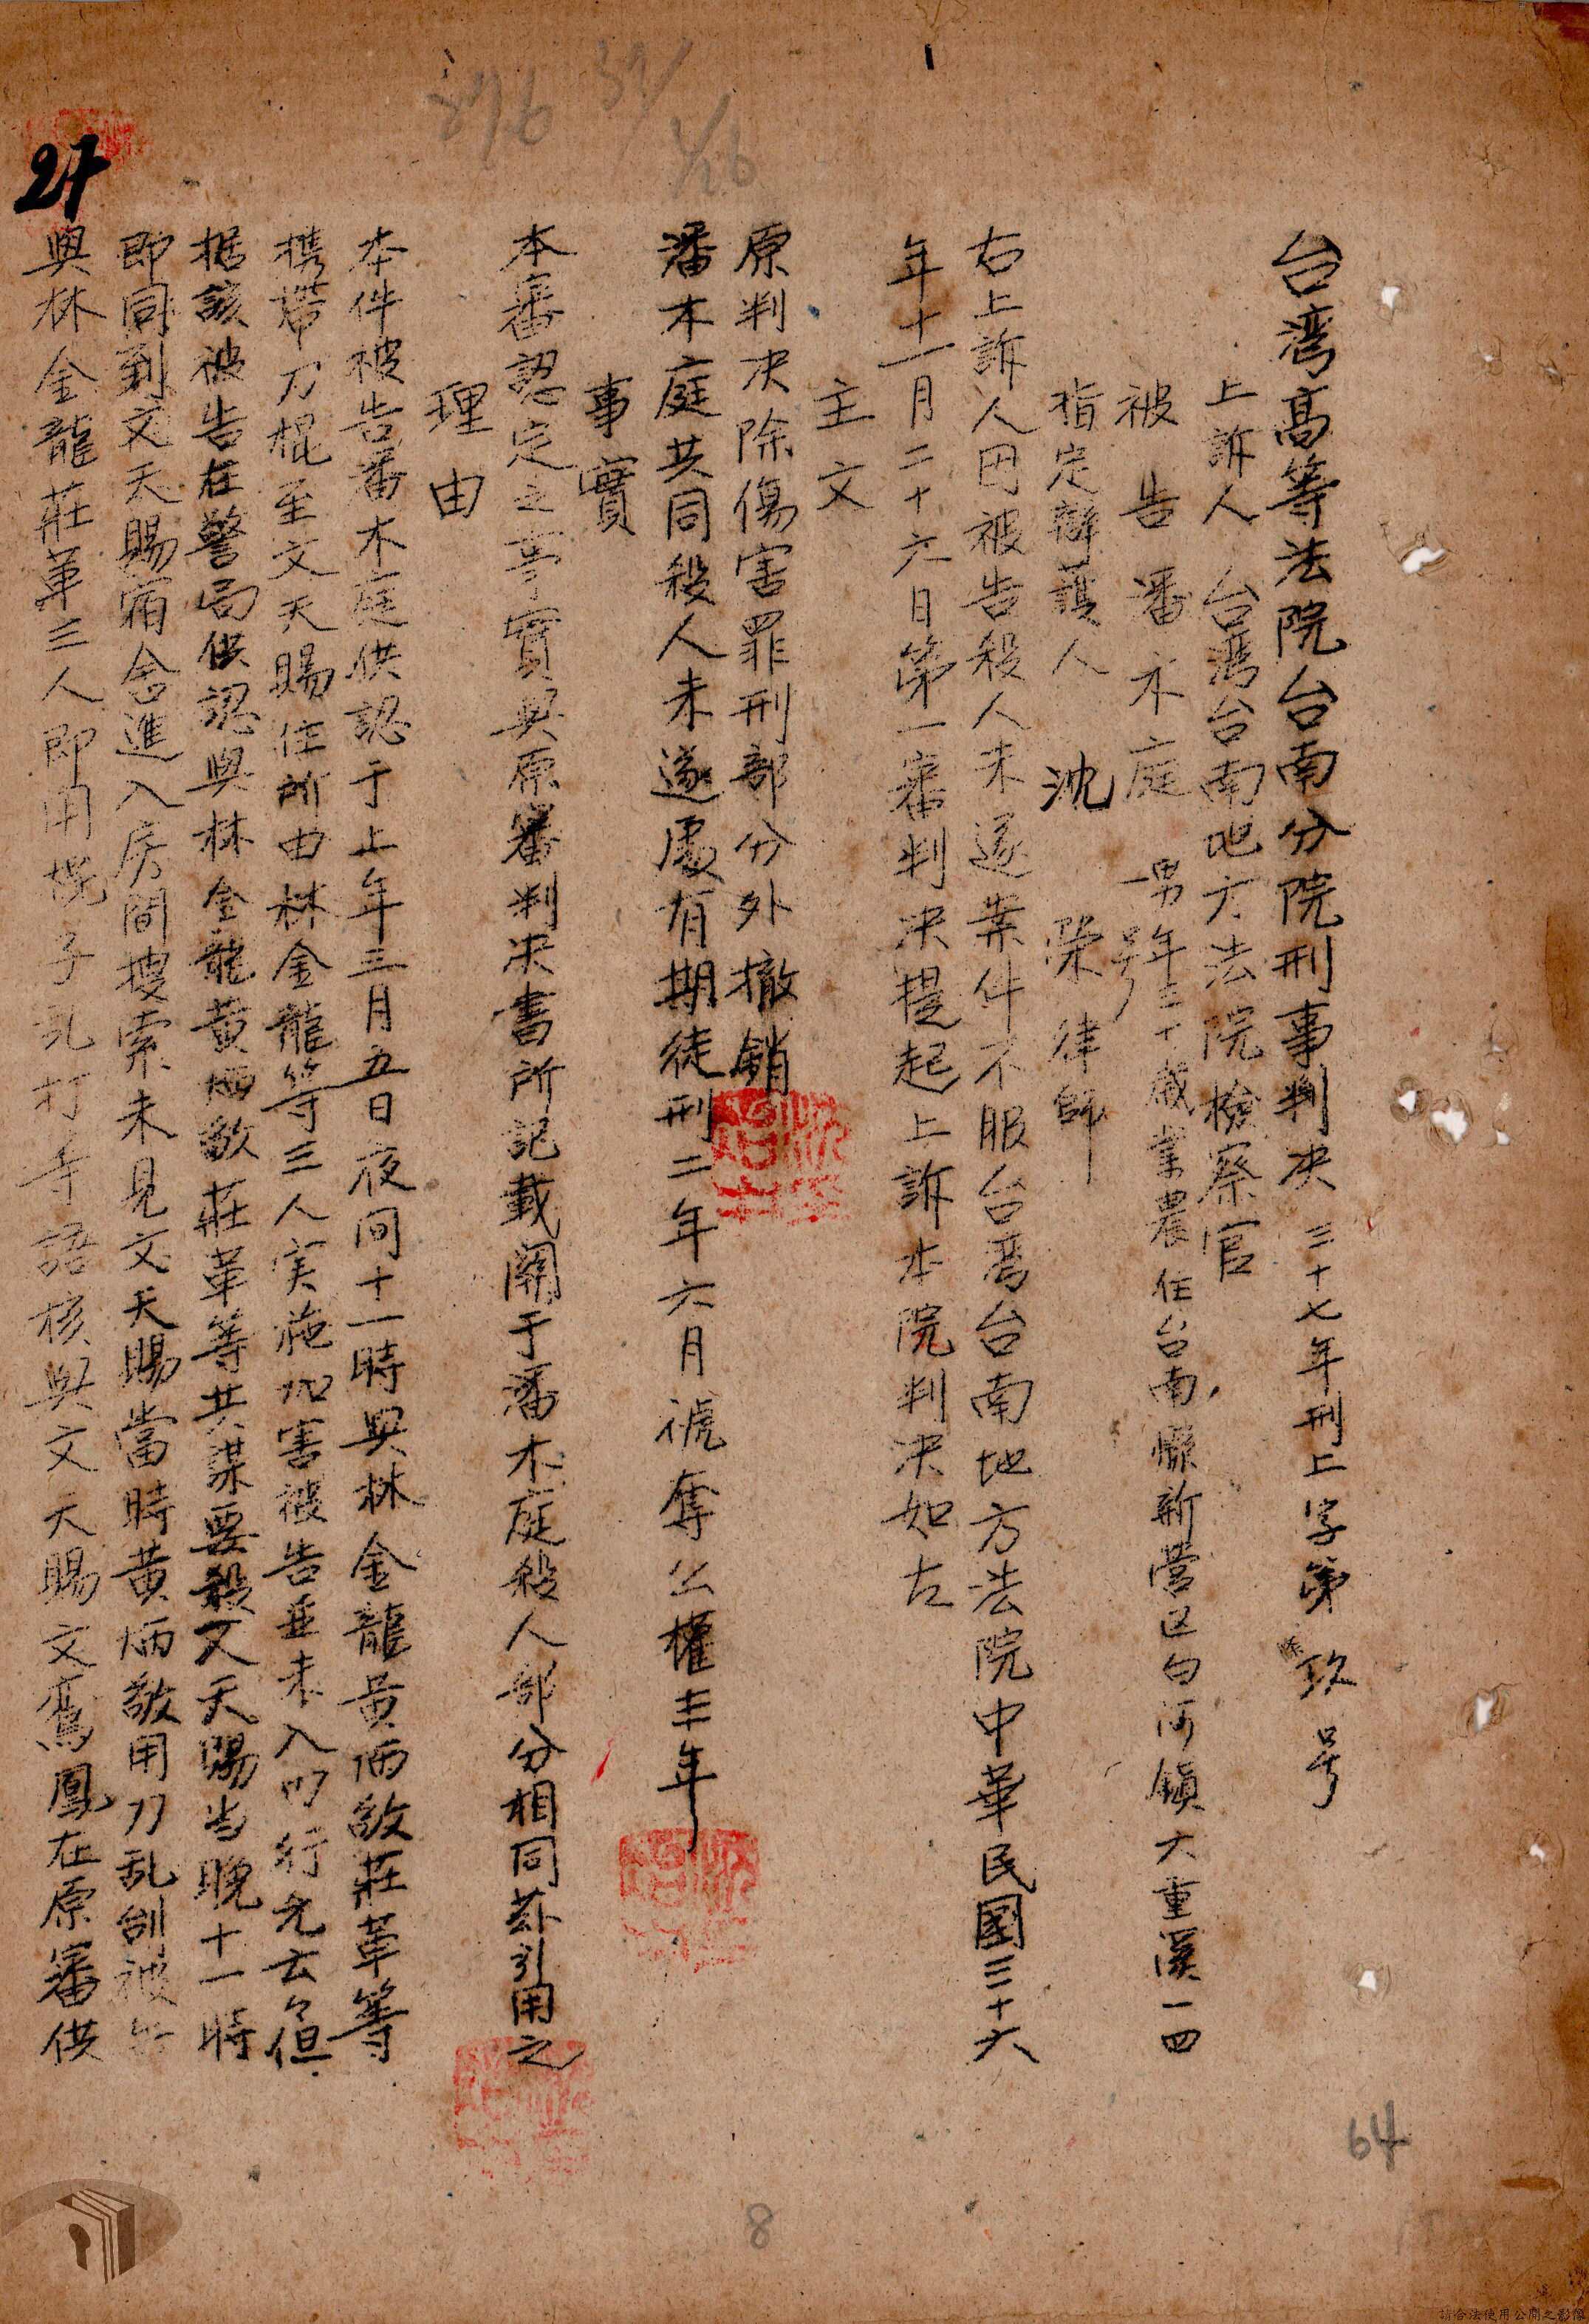 台灣高等法院台南分院刑事判决 三十七年刑上字第玖号
上訴人 台灣台南地方法院檢察官
被告 潘木庭 男年三十歲業農住台南縣新營区白河鎮大重溪一四
号
指定辯護人 沈榮律師
右上訴人因被告殺人未遂案件不服台灣台南地方法院中華民國三十六
年十一月二十六日第一審判决提起上訴本院判决如左
主文
原判决除傷害罪刑部分外撤銷
潘木庭共同殺人未遂處有期徒刑二年六月褫奪公權年
事實
本審認定之事實與原審判决書所記載關于潘木庭殺人部分相同茲引用之
理由
本件被告潘木庭供認于上年三月五日夜间十一時與林金龍黃炳敛莊革等
携帶刀棍至文天賜住所由林金龍等三人实施加害被告並未入内行兇云々但
据該被告在警局供認與林金龍黃炳敛莊革等共謀要殺文天賜当晚十一時
即同到文天賜宿舍進入房間搜索未見文天賜當時黃炳敛用刀乱刣被告
與林金龍莊革三人即用棍子乱打等語核與文天賜文鳳在原審供
27
64
8
請合法使用公開之影像